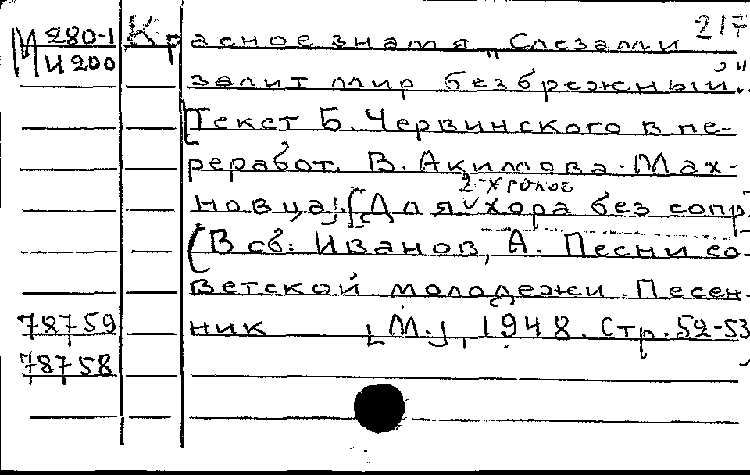 217
М 280-1 Красное знамя „Слезами
И 200 залит мир безбрежный".
[Текст Б. Червинского в пе-
реработ. В. Акимова-Мах-
2-хголос
новца]. [Для хора без сопр.]
(В сб.: Иванов, А. Песни со-
ветской молодежи. Песен-
78759 ник [М.], 1948. Стр. 52-53)
78758